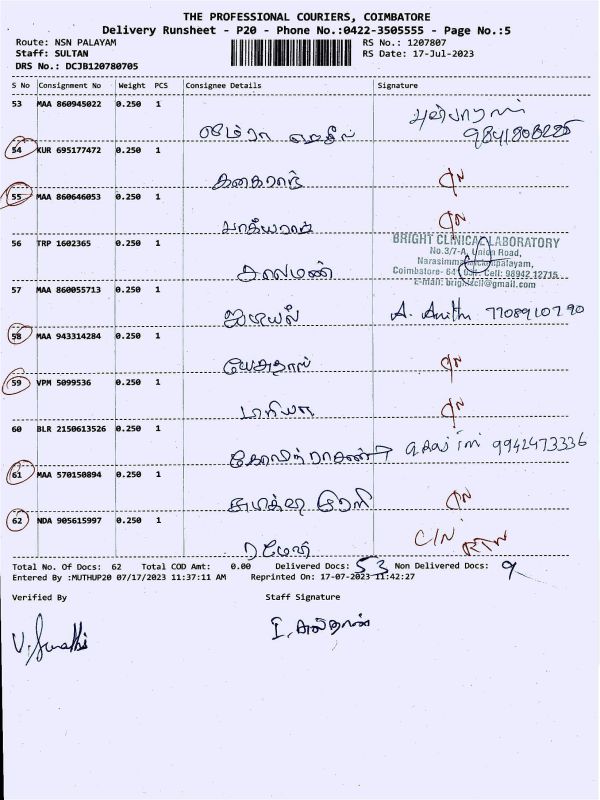 THE PROFESSIONAL COURIERS, COIMBATORE
Delivery Runsheet - P20 - Phone No.:0422-3505555 - Page No.:5
Route: NSN PALAYAM
Staff: SULTAN
DRS No.: DCJB120780705
RS No.: 1207807
RS Date: 17-Jul-2023
S No Consignment No Weight PCS Consignee Details Signature
53 MAA 860945022 0.250 1
9841808225
54 KUR 695177472 0.250 1
கனகராஜ் CN
55 MAA 860646053 0.250 1
பாக்யராஜ் CN
56 TRP 1602365 0.250 1
சாலமன்
BRIGHT CLINICAL LABORATORY
No.3/7-A, Union Road,
Coimbatore- 641 031. Cell: 98942 12715
E-mail: brightcil@gmail.com
57 MAA 860055713 0.250 1
A. Anith 7708910790
58 MAA 943314284 0.250 1
யேசுதாஸ் CN
59 VPM 5099536 0.250 1
மரியா CN
60 BLR 2150613526 0.250 1
9942473336
61 MAA 570150894 0.250 1
CN
62 NDA 905615997 0.250 1
ரமேஷ் C/N RTN
Total No. Of Docs: 62 Total COD Amt: 0.00 Delivered Docs: 53 Non Delivered Docs: 9
Entered By :MUTHUP20 07/17/2023 11:37:11 AM Reprinted On: 17-07-2023 11:42:27
Verified By Staff Signature